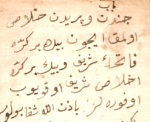 باب
جنندن و پریدن خلاص
اولمق ایچون بیك بر كره
فاتحهٔ شریف وبیك بر كره
اخلاص شریف اوقویوب
اوفوره لر باذن الله شفا بولور